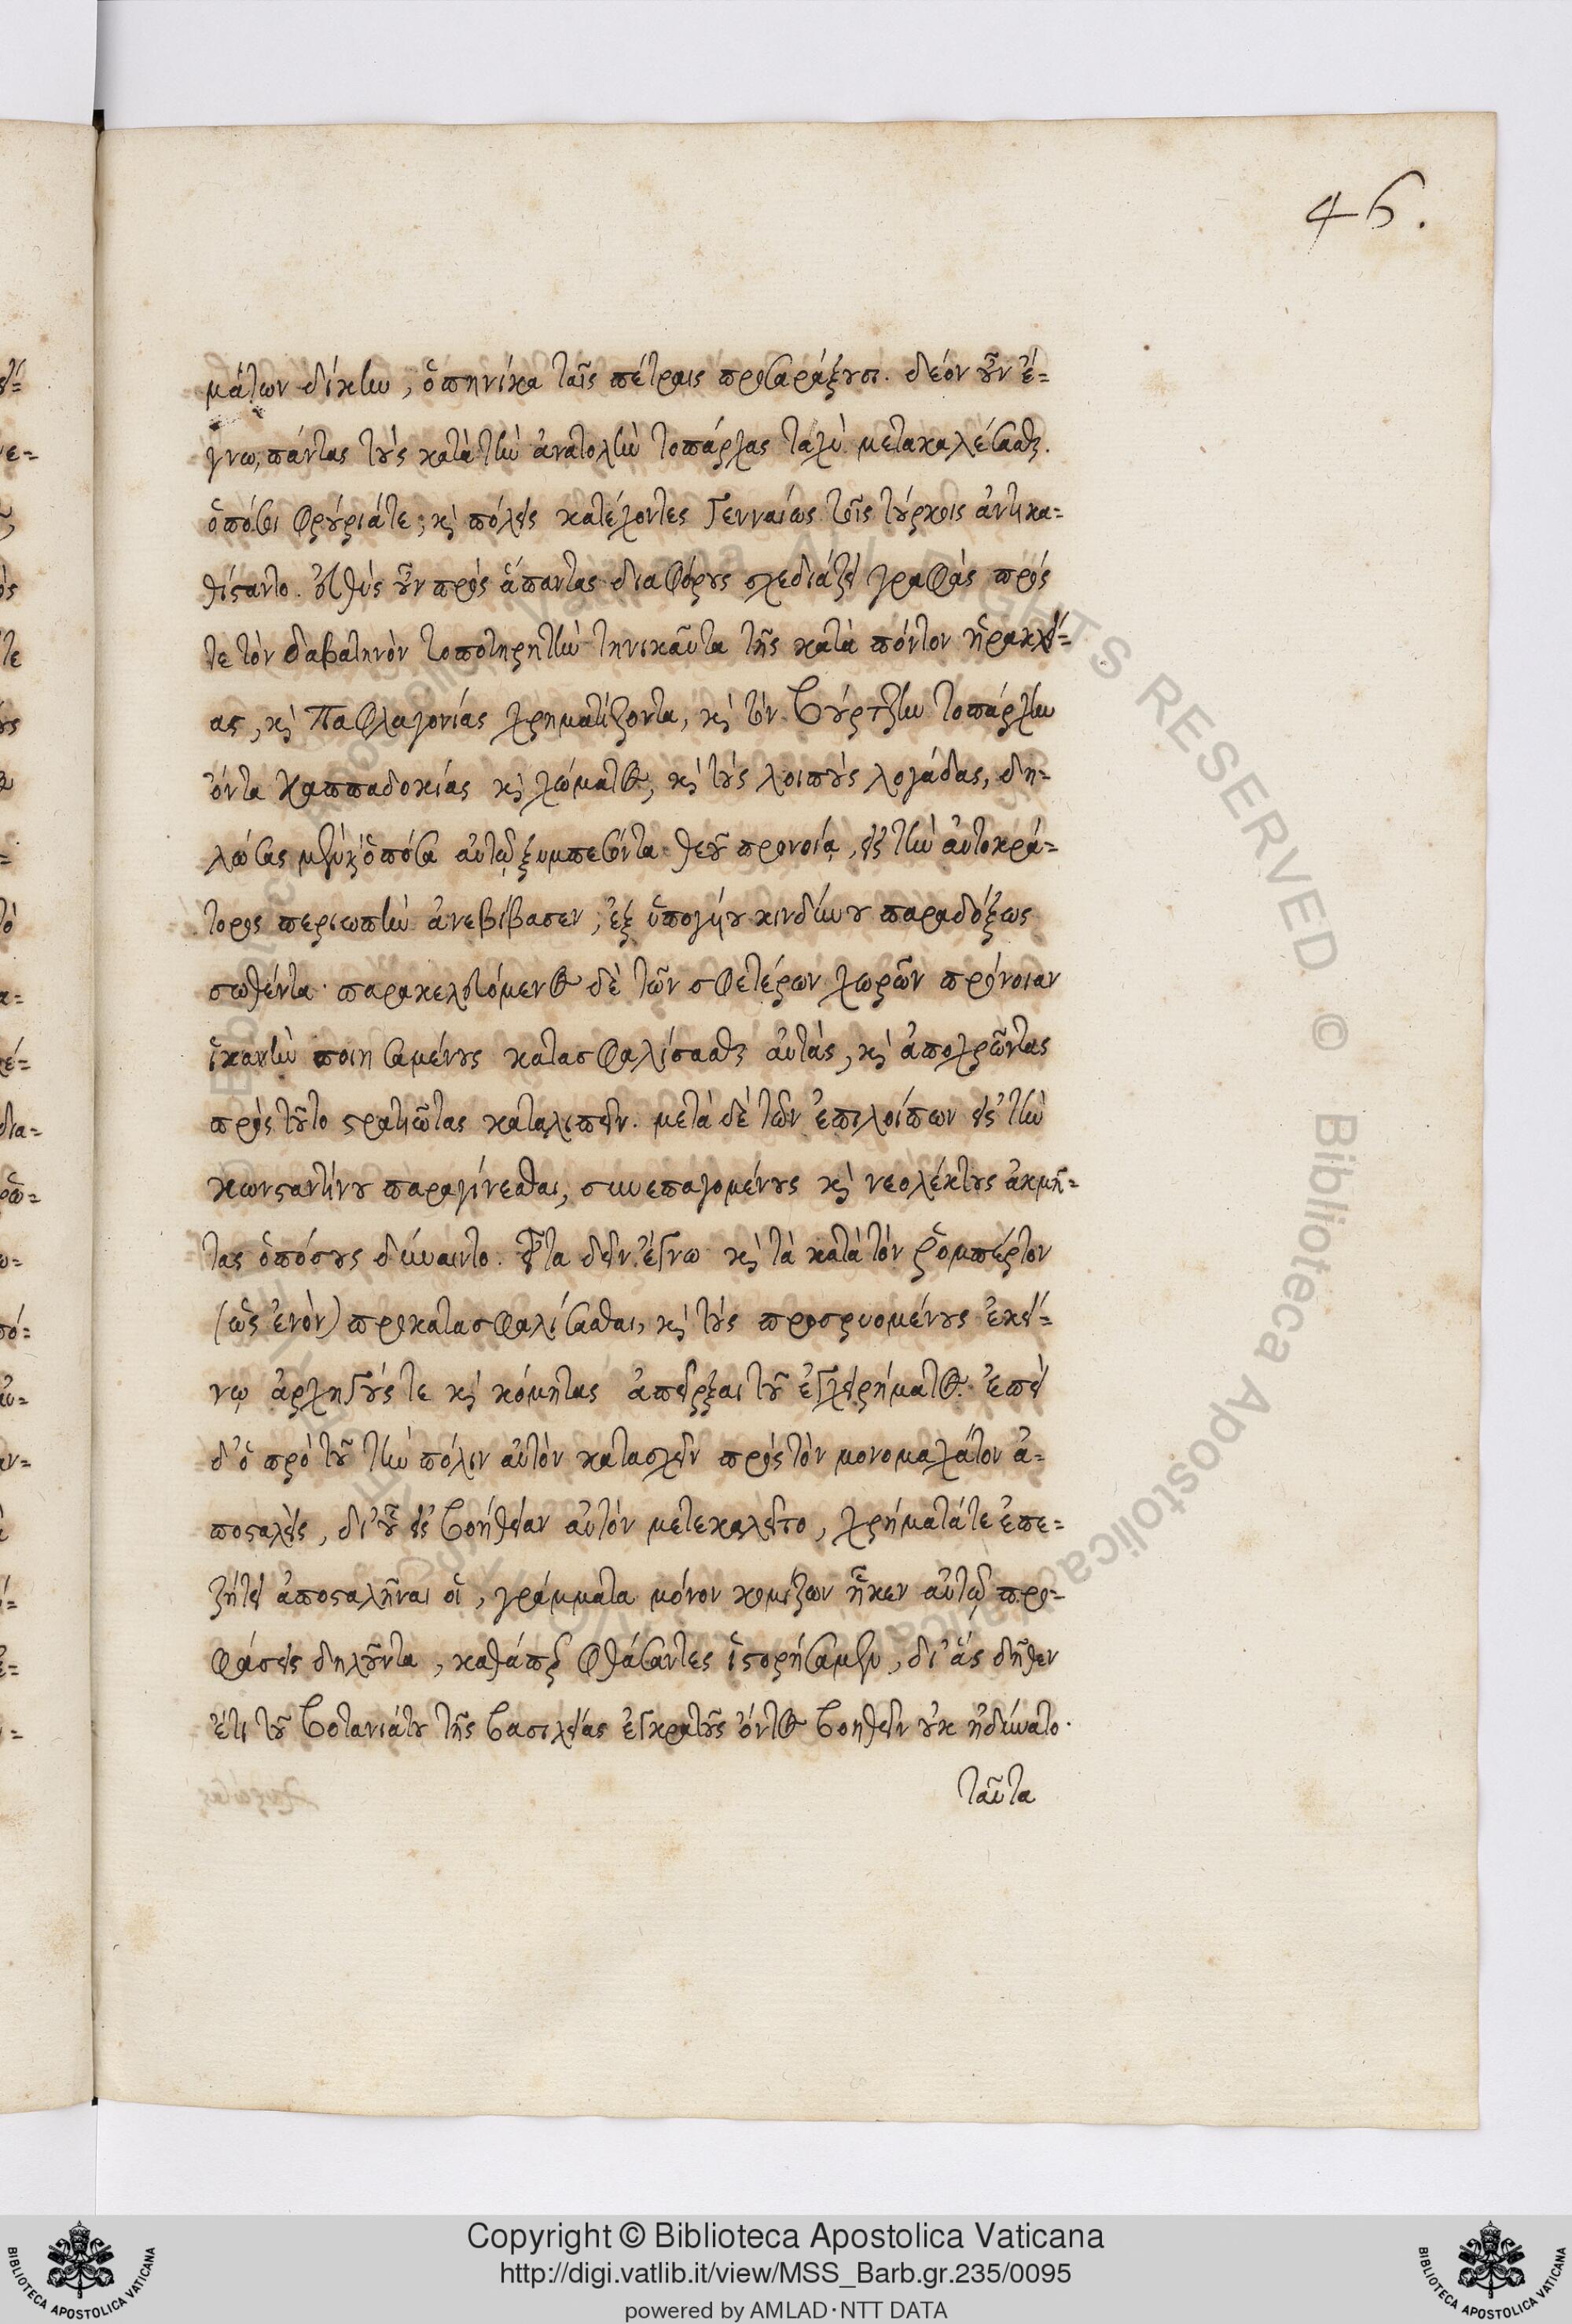 46.
μάτων δίκην, ὁπηνίκα ταῖς πέτραις προσαράξουσι. δέον οὖν ἔ=
γνω, πάντας τοὺς κατὰ τὴν ἀνατολὴν τοπάρχας ταχὺ μετακαλέσασθαι.
ὁπόσοι φρούριάτε, καὶ πόλεις κατέχοντες γενναίως τοῖς τούρκοις ἀντικα=
θίσταντο. εὐθὺς οὖν πρὸς ἅπαντας διαφόρους σχεδιάζει γραφὰς πρός
τε τὸν δαβατηνὸν τοποτηρητὴν τηνικαῦτα τῆς κατὰ πόντον ἡρακλεί=
ας, καὶ Παφλαγονίας χρηματίζοντα, καὶ τὸν βούρτζην τοπάρχην
ὄντα καππαδοκίας καὶ χώματος, καὶ τοὺς λοιποὺς λογάδας, δη=
λώσας μὲν καὶ ὁπόσα αὐτῷ ξυμπεσόντα θεοῦ προνοίᾳ, εἰς τὴν αὐτοκρά=
τορος περιωπὴν ἀνεβίβασεν, ἐξ ὑπογύου κινδύνου παραδόξως
σωθέντα· παρακελευόμενος δὲ τῶν σφετέρων χωρῶν πρόνοιαν
ἱκανὴν ποιησαμένους κατασφαλίσασθαι αὐτάς, καὶ ἀποχρῶντας
πρὸς τοῦτο στρατιώτας καταλιπεῖν. μετὰ δὲ τῶν ἐπιλοίπων εἰς τὴν
κωνσταντίνου παραγίνεσθαι, συνεπαγομένους καὶ νεολέκτους ἀκμῆ=
τας ὁπόσους δύναιντο. εἶτα δεῖν ἔγνω καὶ τὰ κατὰ τὸν ῥομπέρτον
(ὡς ἐνὸν) προκατασφαλίσασθαι, καὶ τοὺς προσρυομένους ἐκεί=
νῳ ἀρχηγούς τε καὶ κόμητας ἀπεῖρξαι τοῦ ἐγχειρήματος. ἐπεὶ
δ' ὁ πρὸ τοῦ τὴν πόλιν αὐτὸν κατασχεῖν πρὸς τὸν μονομαχάτον ἀ=
ποσταλείς, δι' οὗ εἰς βοήθειαν αὐτὸν μετεκαλεῖτο, χρήματάτε ἐπε=
ζήτει ἀποσταλῆναι οἷ, γράμματα μόνον κομίζων ἧκεν αὐτῷ προ=
φάσεις δηλοῦντα, καθάπερ φθάσαντες ἱστορήσαμεν, δι' ἃς δῆθεν
ἔτι τοῦ βοτανιάτου τῆς βασιλείας ἐγκρατοῦς ὄντος βοηθεῖν οὐκ ἠδύνατο·
ταῦτα
Copyright © Biblioteca Apostolica Vaticana
http://digi.vatlib.it/view/MSS_Barb.gr.235/0095
powered by AMLAD·NTT DATA